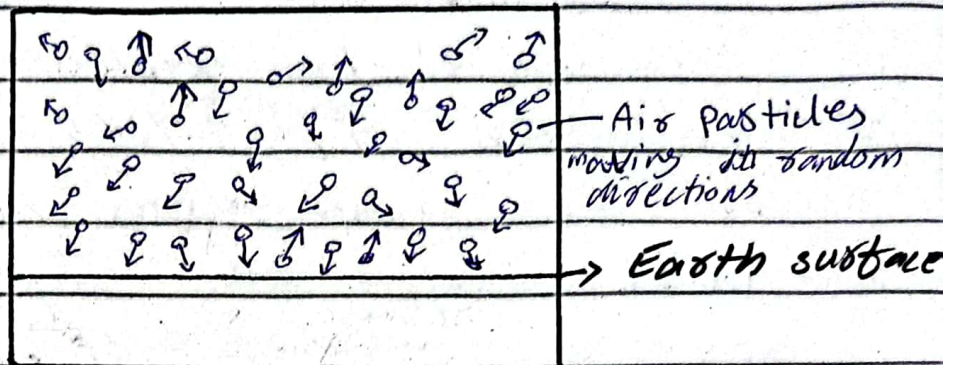 Air particles
moving in random
directions
Earth surface